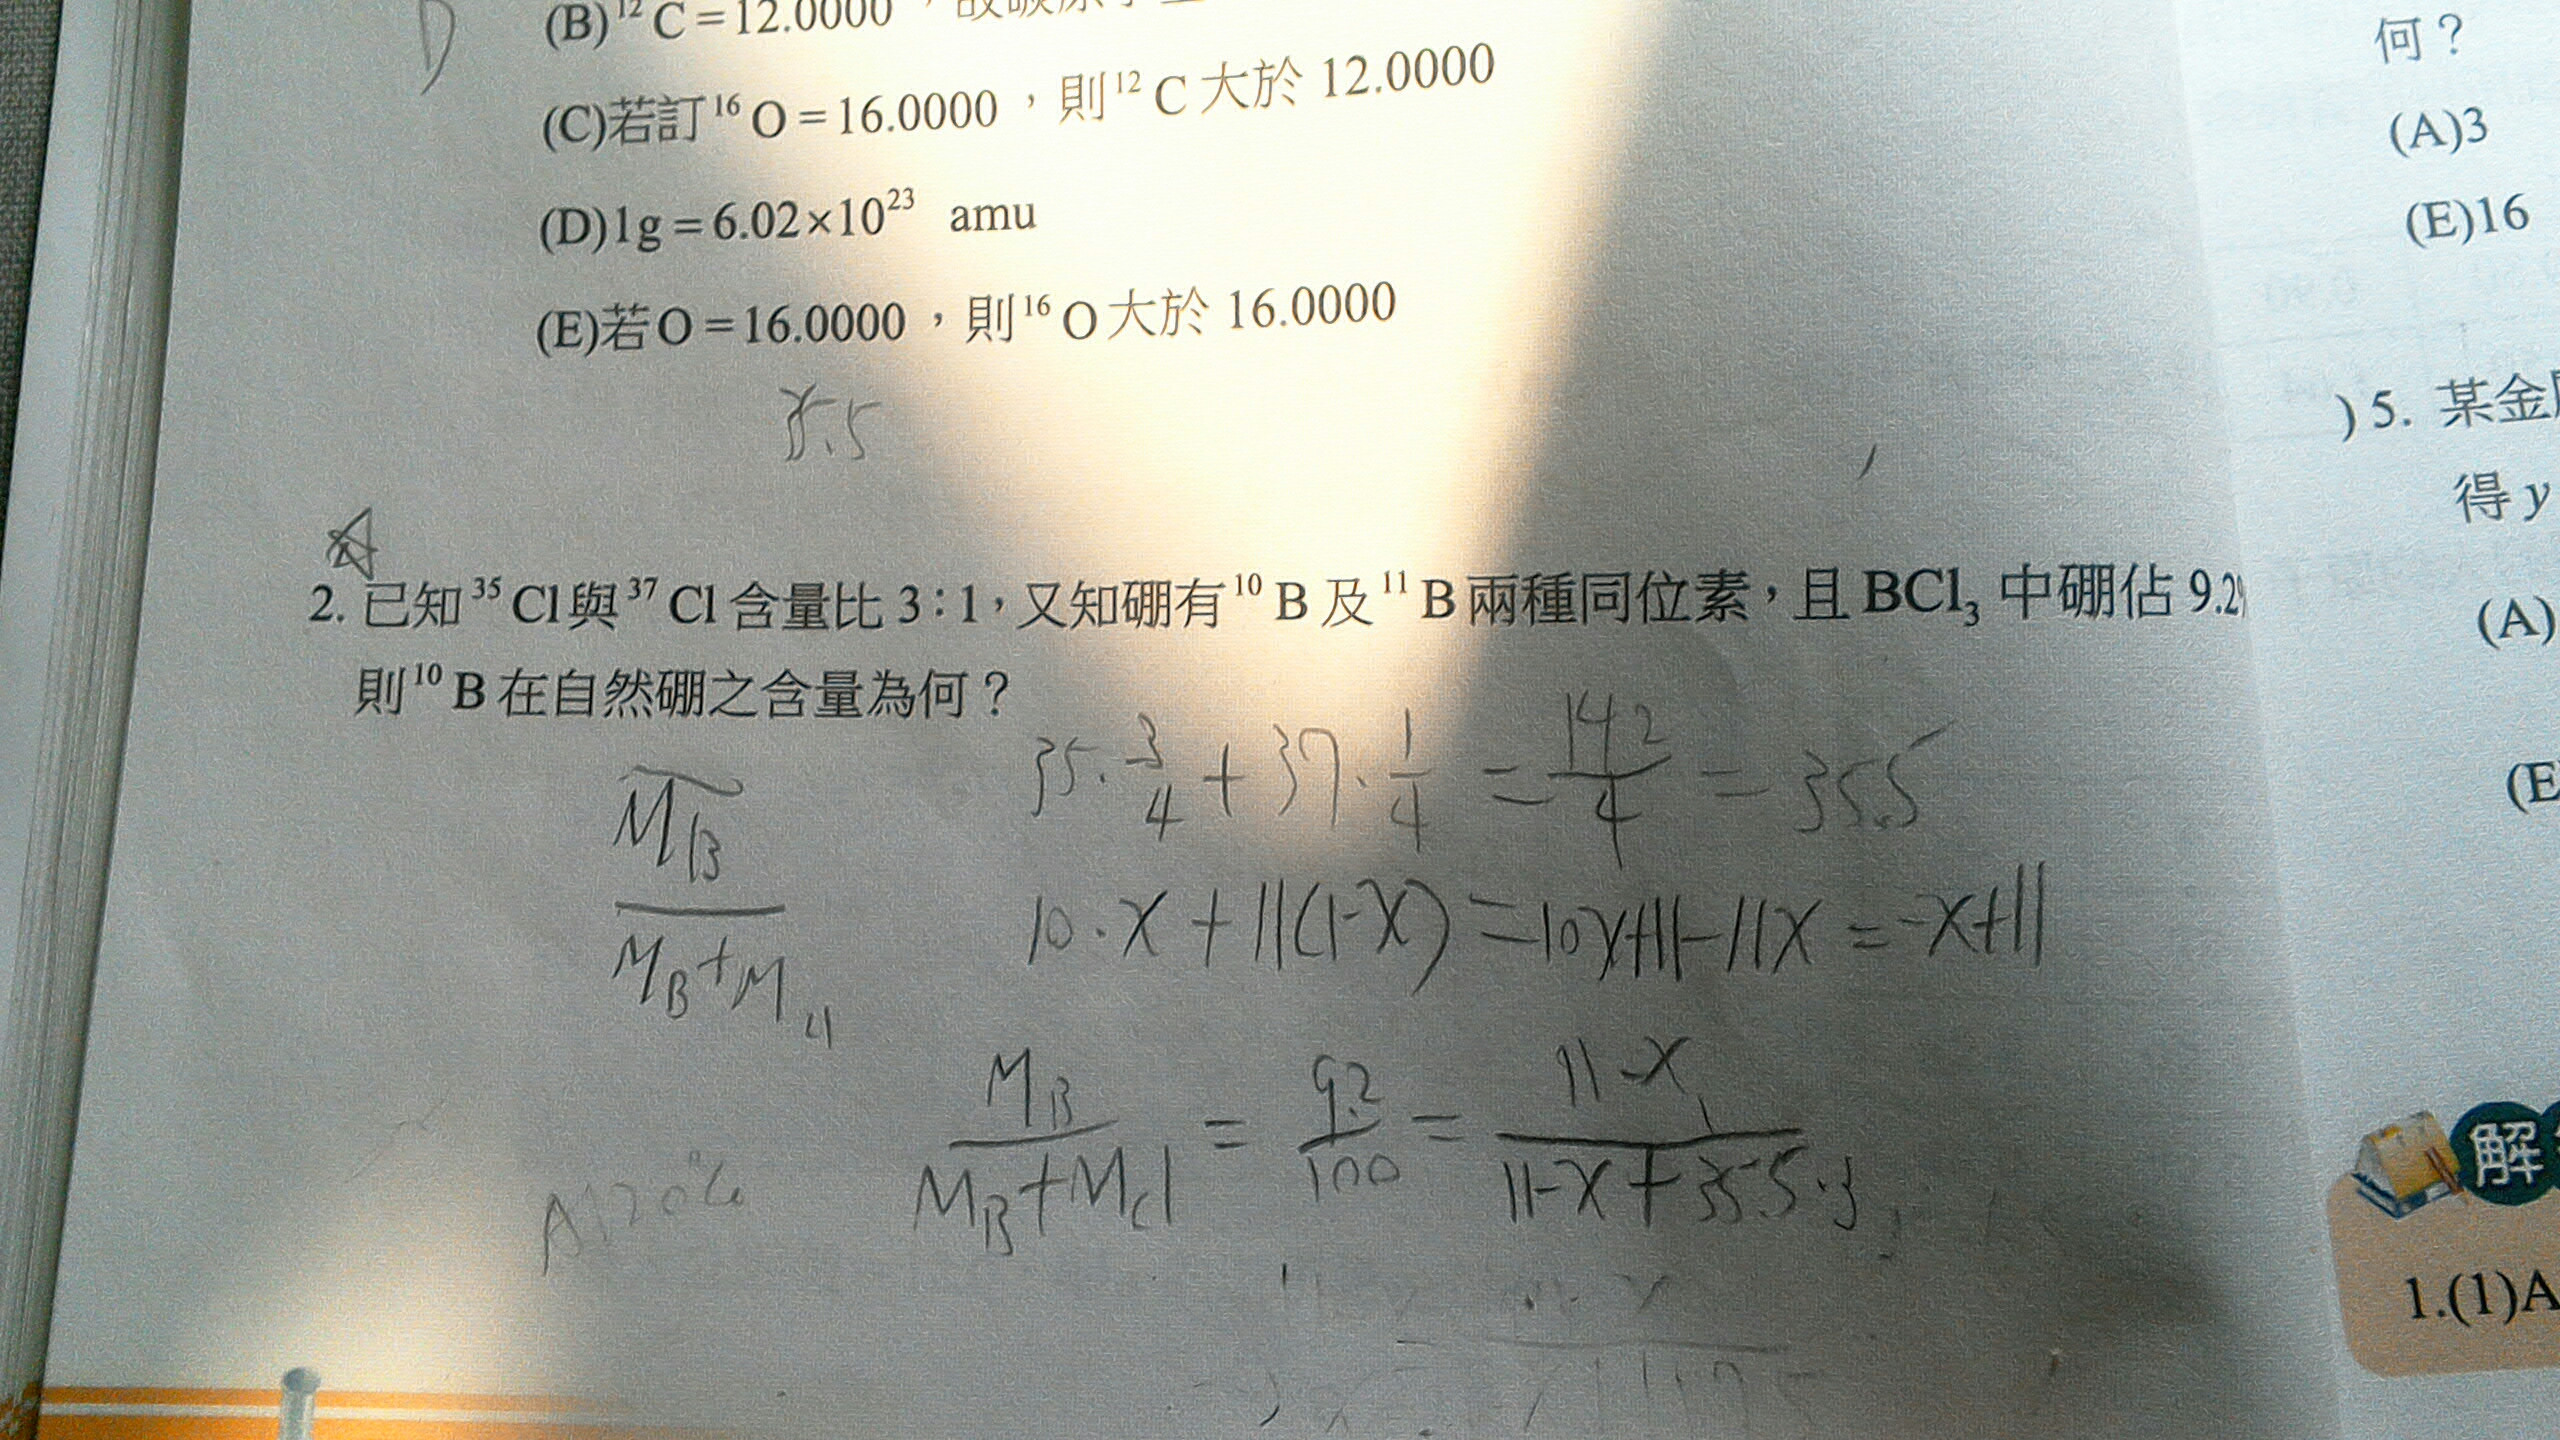 (B) ¹²C = 12.0000，故碳原子量
(C)若訂 ¹⁶O = 16.0000，則 ¹²C 大於 12.0000
(D)1g = 6.02×10²³ amu
(E)若 O = 16.0000，則 ¹⁶O 大於 16.0000
2. 已知 ³⁵Cl 與 ³⁷Cl 含量比 3：1，又知硼有 ¹⁰B 及 ¹¹B 兩種同位素，且 BCl₃ 中硼佔 9.2
則 ¹⁰B 在自然硼之含量為何？
35·3/4 + 37·1/4 = 142/4 = 35.5
M_B / (M_B + M_Cl)
10·X + 11(1-X) = 10X+11-11X = -X+11
M_B / (M_B+M_Cl) = 9.2/100 = (11-X) / (11-X+35.5·3)
A：20%
何？
(A)3
(E)16
) 5. 某金
得 y
(A)
(E
解
1.(1)A